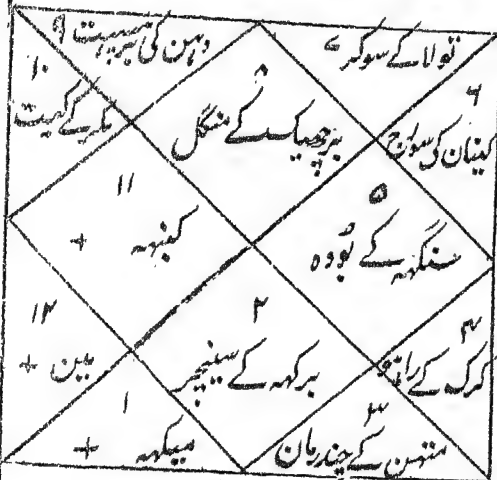 دہن کی برہسپت ۹
تولا کے سوکر ۷
۱۰
مکر کے کیت
۸
برچھیک کے منگل
۶
کینان کی سواج
۱۱
کنبہہ +
۵
سنگہہ کے بودہ
۱۲
مین +
۲
برکہہ کے سینیچر
۴
کرک کے راہو
۱
میکہہ +
۳
متہن کے چندرمان